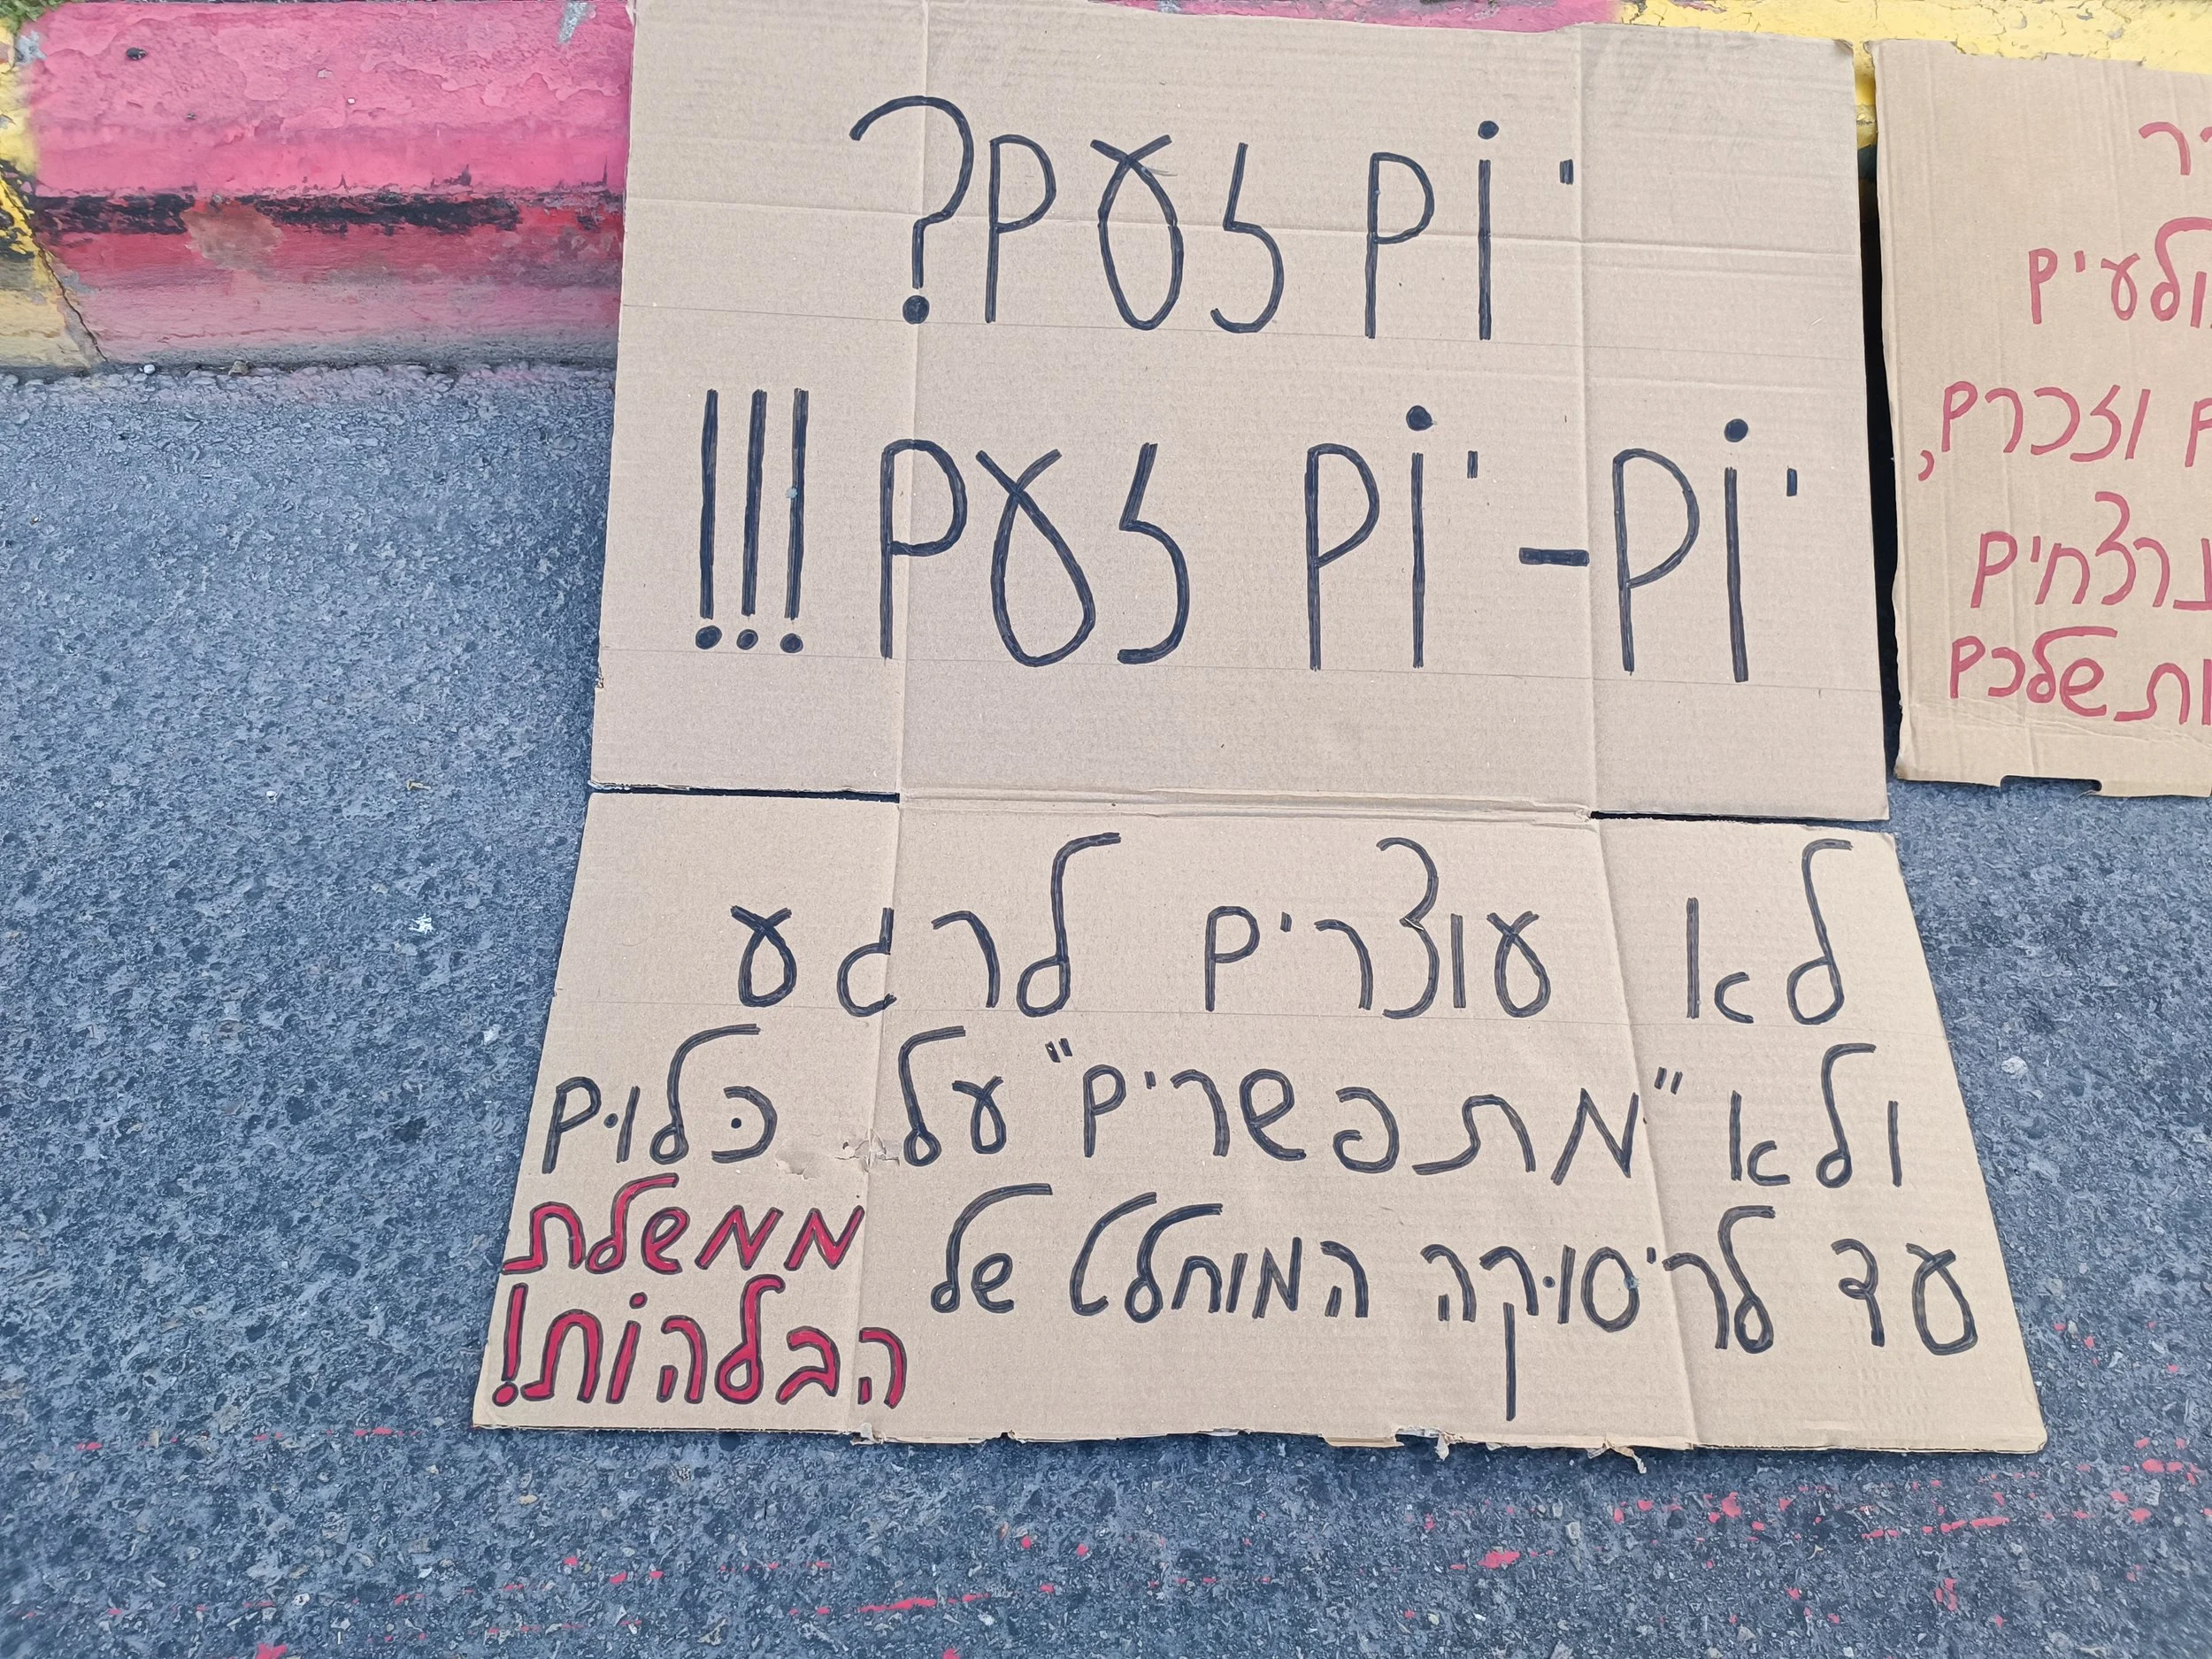 יוֹם זעם?
יוֹם-יוֹם זעם!!!
לא עוצרים לרגע
ולא "מתפשרים" על כּלוּם
עד לריסוּקה המוחלט של ממשלת
הבלהוֹת!
וזכרם,
שלכם